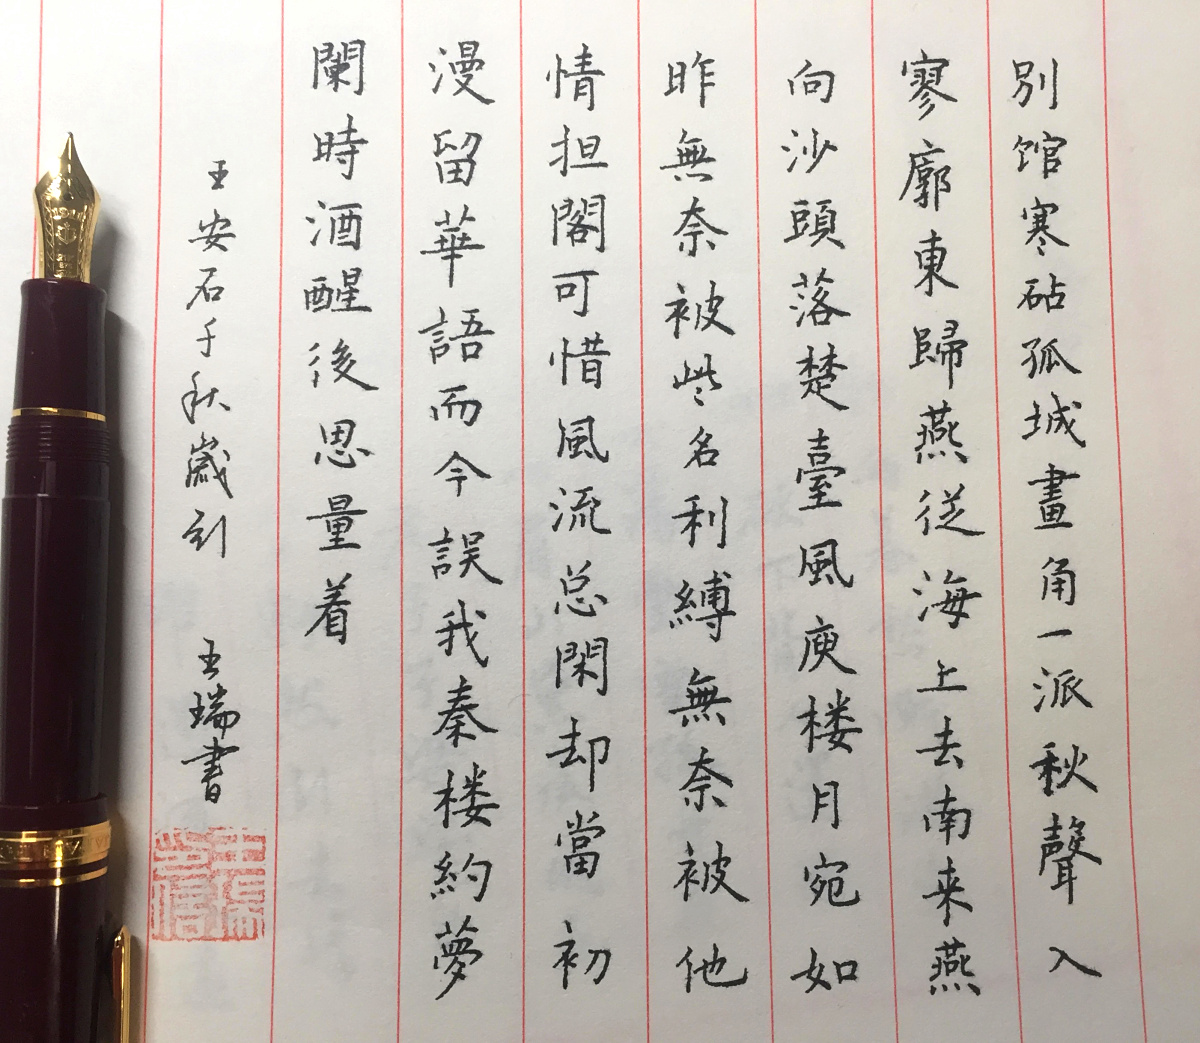 別馆寒砧孤城畫角一派秋聲入
寥廓東歸燕従海上去南来燕
向沙頭落楚臺風庾楼月宛如
昨無奈被些名利縛無奈被他
情担閣可惜風流总閑却當初
漫留華語而今誤我秦楼約夢
闌時酒醒後思量着
王安石千秋歲引 王瑞書
王瑞印信